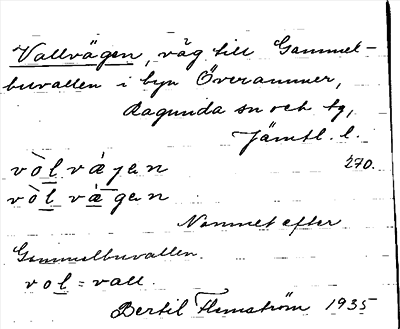 Vallvägen, väg till Gammel-
buvallen i byn Överammer,
Ragunda sn och tg,
Jämtl. l.
vòlväjen 270.
vòlvägen
Namnet efter
Gammelbuvallen.
vol = vall
Bertil Flemström 1935